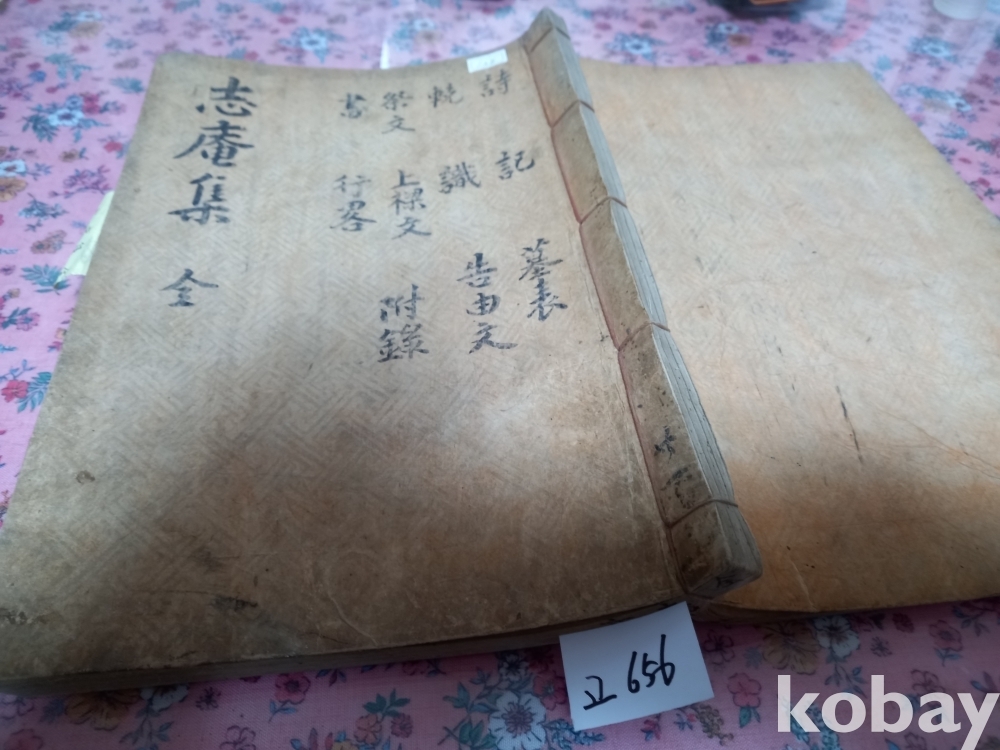 志庵集 全
詩 記 墓表
輓 識 告由文
祭文 上樑文 附錄
書 行畧
고 656
kobay